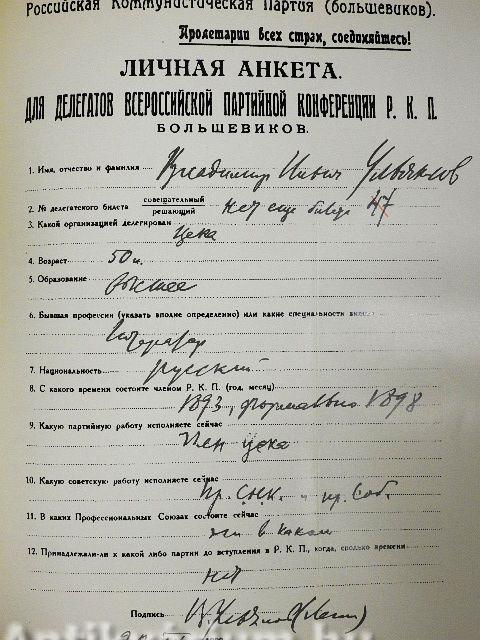 Российская Коммунистическая Партия (большевиков).
Пролетарии всех стран, соединяйтесь!
ЛИЧНАЯ АНКЕТА.
ДЛЯ ДЕЛЕГАТОВ ВСЕРОССИЙСКОЙ ПАРТИЙНОЙ КОНФЕРЕНЦИИ Р. К. П.
БОЛЬШЕВИКОВ.
1. Имя, отчество и фамилия Владимир Ильич Ульянов
2. № делегатского билета совещательный решающий нет еще билета 47
3. Какой организацией делегирован
Цека
4. Возраст 50 л.
5. Образование высшее
6. Бывшая профессия (указать вполне определенно) или какие специальности
литератор
7. Национальность русский
8. С какого времени состоите членом Р. К. П. (год, месяц)
1893, формально 1898
9. Какую партийную работу исполняете сейчас
Член цека
10. Какую советскую работу исполняете сейчас
пр. С.Н.К. и пр. С.об.
11. В каких Профессиональных Союзах состоите сейчас
ни в каком
12. Принадлежали-ли к какой либо партии до вступления в Р. К. П., когда, сколько времени
нет
Подпись В. Ульянов (Ленин)